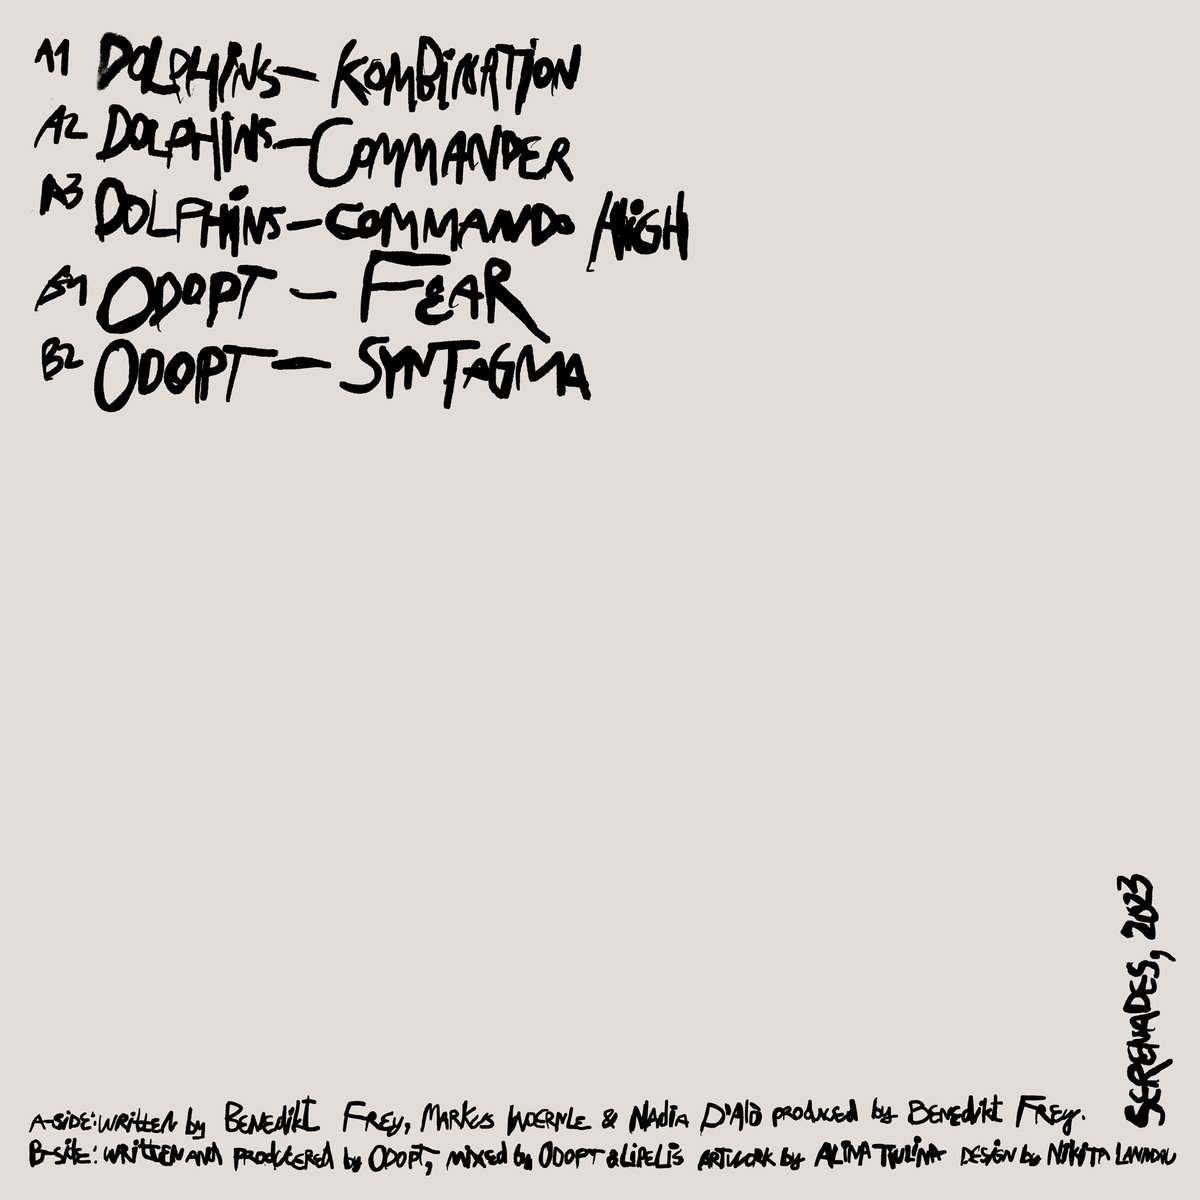 A1 DOLPHINS — KOMBINATION
A2 DOLPHINS — COMMANDER
A3 DOLPHINS — COMMANDO HIGH
B1 ODOPT — FEAR
B2 ODOPT — SYNTAGMA
SERENADES, 2023
A-SIDE: WRITTEN by BENEDIKT FREY, MARKUS WOERNLE & NADIA D'ALÒ PRODUCED by BENEDIKT FREY.
B-SIDE: WRITTEN AND by ODOPT, MIXED by ODOPT & LIPELIS ARTWORK by ALINA DESIGN by NIKITA